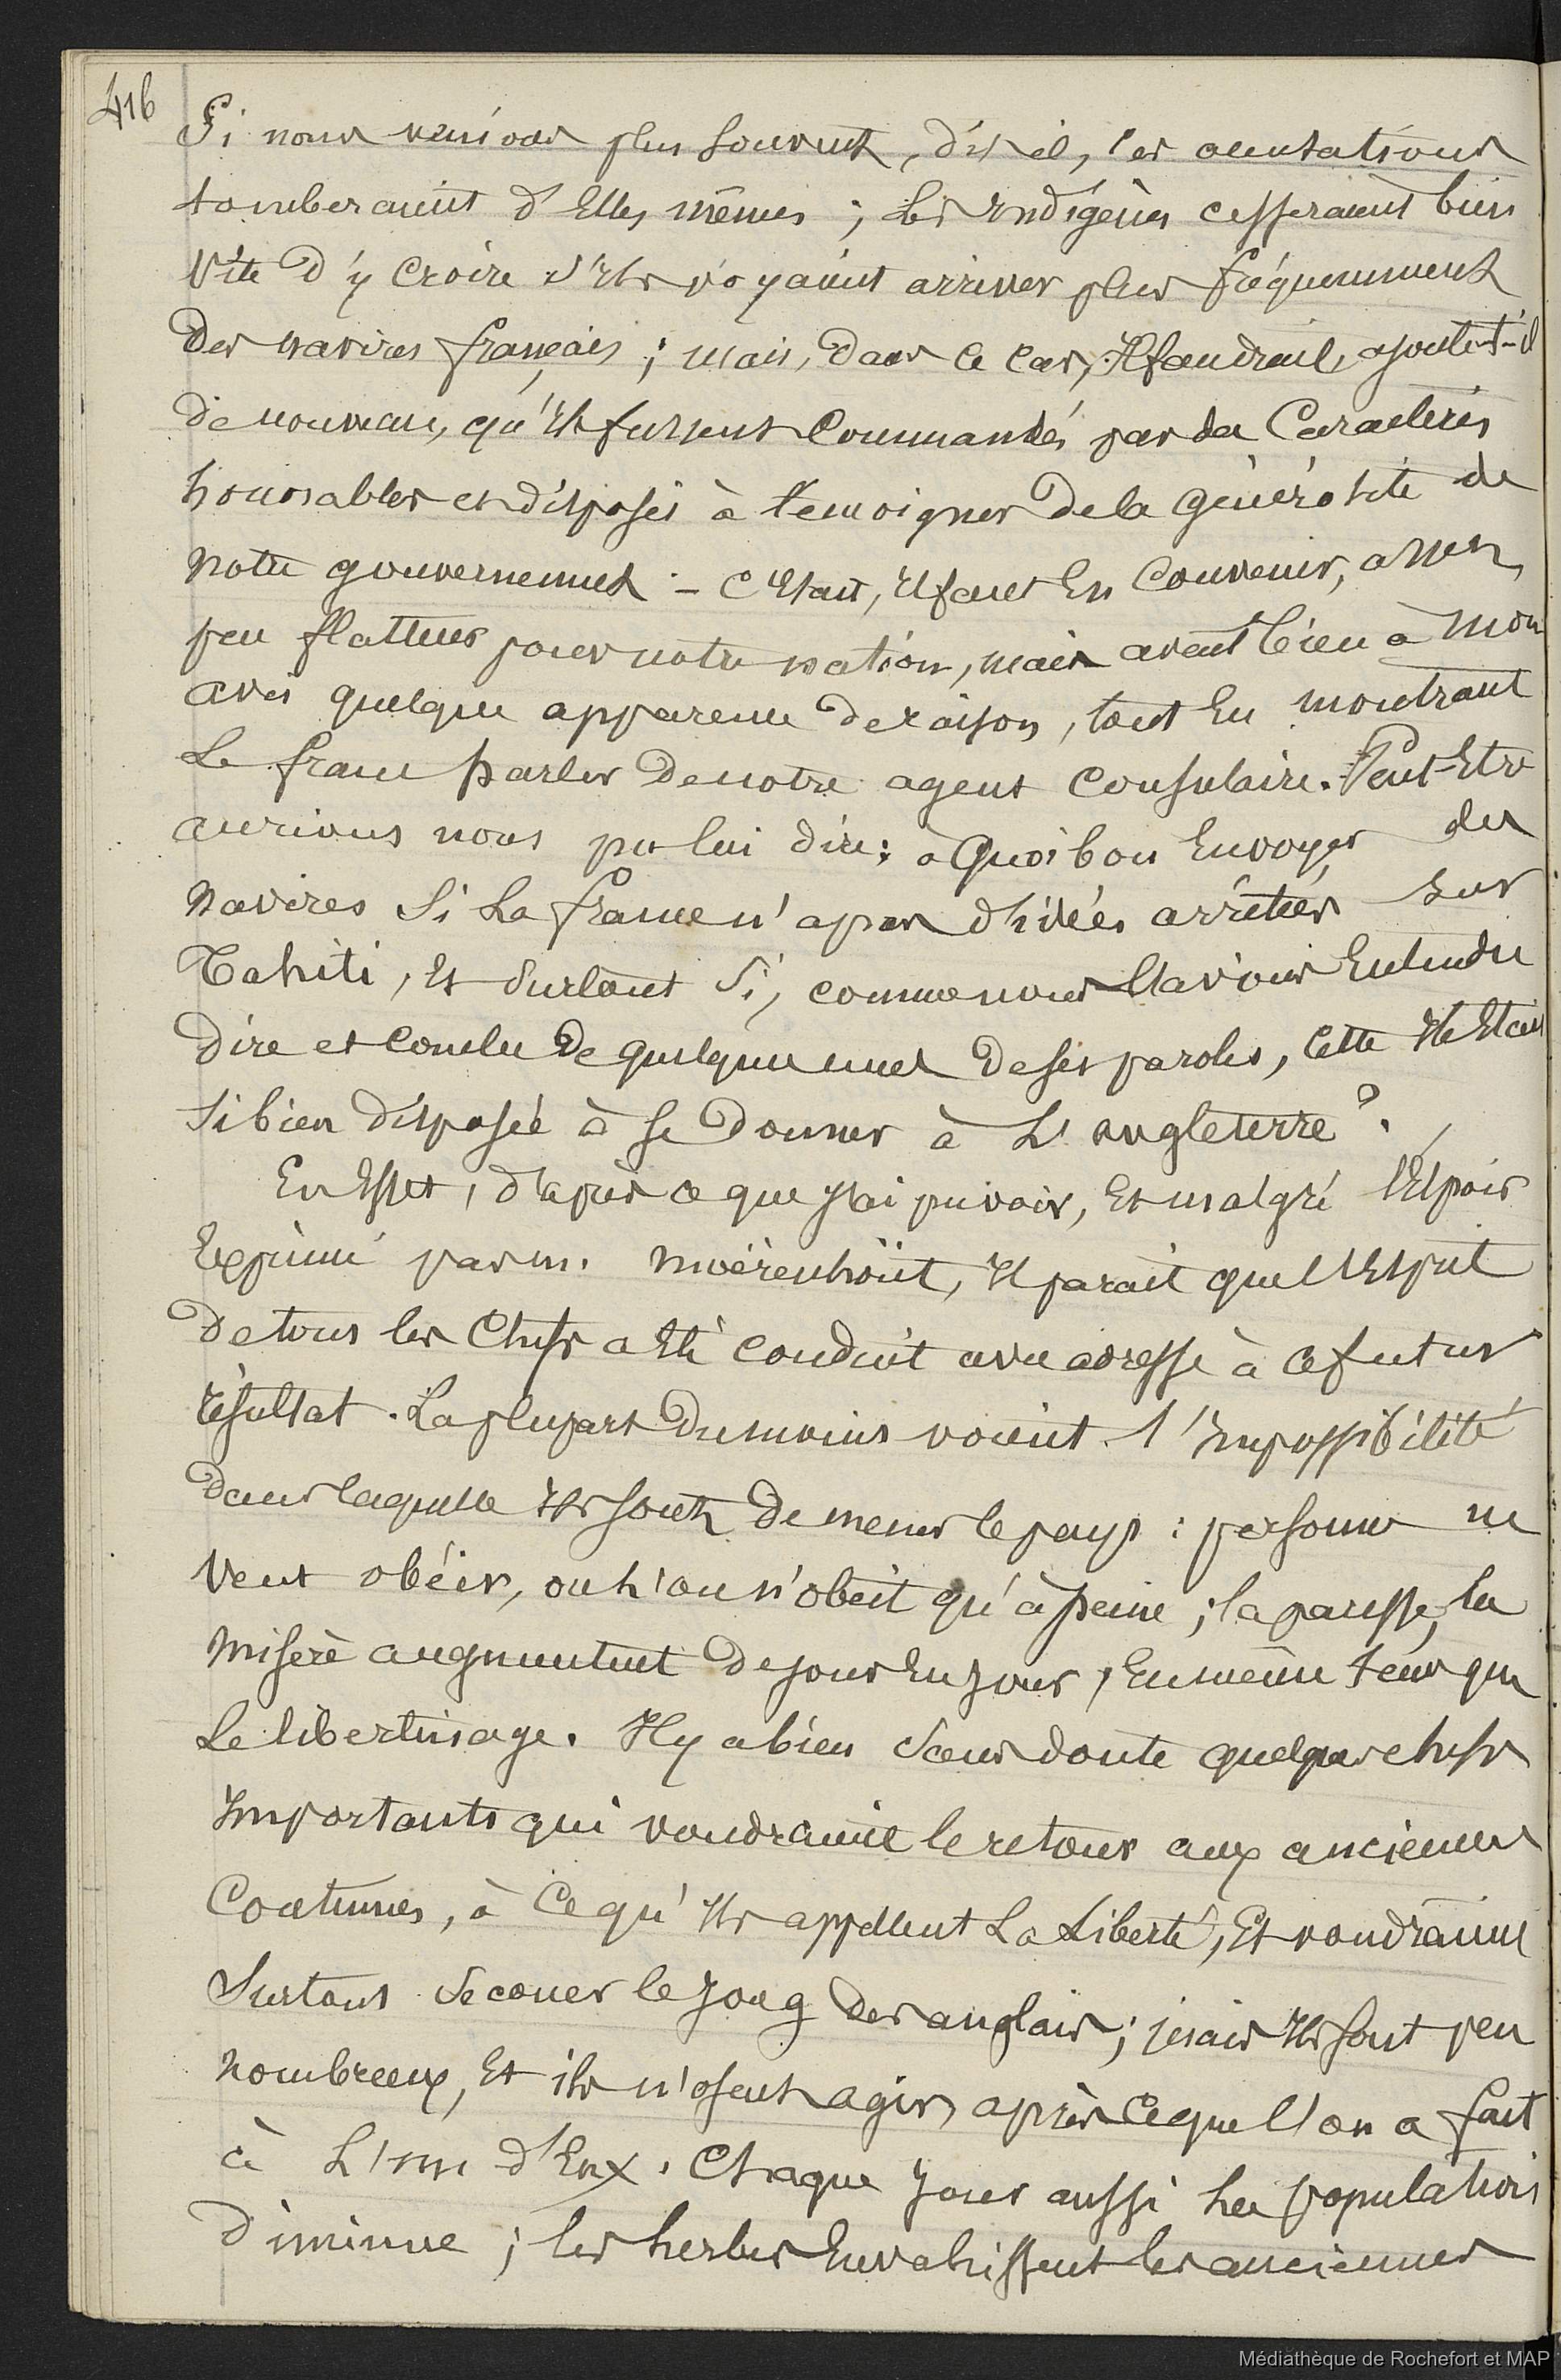 416
Si nous venions plus souvent, dit-il, les accusations
tomberaient d'Elles mêmes ; les Indigènes cesseraient bien
vite d'y croire s'Ils voyaient arriver plus fréquemment
des navires français ; mais, dans ce cas, Il faudrait, ajoute-t-il
de nouveau, qu'Ils fussent commandés par des Caractères
honorables et disposés à témoigner de la générosité de
notre gouvernement. - C'Etait, Il faut En Convenir, assez
peu flatteur pour notre nation, mais avait bien à mon
avis quelque apparence de raison, tout En montrant
Le franc parler de notre agent Consulaire. Peut-Etre
aurions nous pu lui dire: à quoi bon Envoyer des
navires Si La france n'a pas d'idées arrêtées sur
Tahiti, Et Surtout Si, comme nous l'avions Entendu
dire et conclu de quelques unes de ses paroles, Cette Ile Etait
si bien disposée à se donner à L'angleterre ?
En Effet, d'après ce que j'ai pu voir, Et malgré l'Espoir
Exprimé par m. Moërenhoüt, Il parait que l'Esprit
de tous les Chefs a Eté conduit avec adresse à ce futur
résultat. La plupart du moins voient l'Impossibilité
dans laquelle Ils sont de mener le pays : personne ne
veut obéir, ou l'on n'obéit qu'à peine ; la paresse, la
misère augmentent de jour En jour, En même tems que
Le libertinage. Il y a bien sans doute quelques chefs
Importants qui voudraient le retour aux anciennes
Coutumes, à Ce qu'Ils appellent La Liberté, Et voudraient
Surtout Secouer le joug des anglais ; mais Ils sont peu
nombreux, Et ils n'osent agir, après Ce que l'on a fait
à L'un d'Eux. Chaque jour aussi La population
diminue ; les herbes Envahissent les anciennes
Médiathèque de Rochefort et MAP